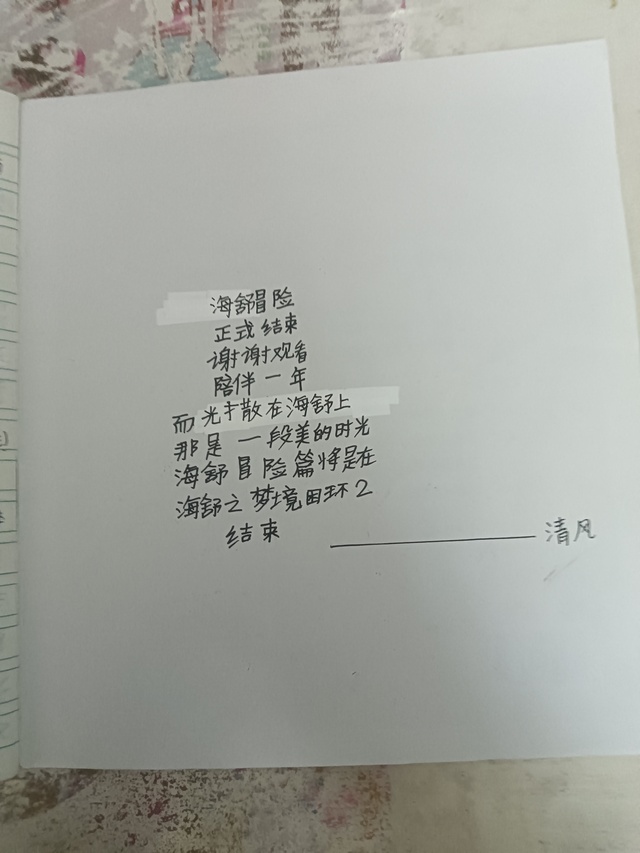 海舒冒险
正式结束
谢谢观看
陪伴一年
而光扌散在海舒上
那是一段美的时光
海舒冒险篇将是在
海舒之梦境回环2
结束
——————清风